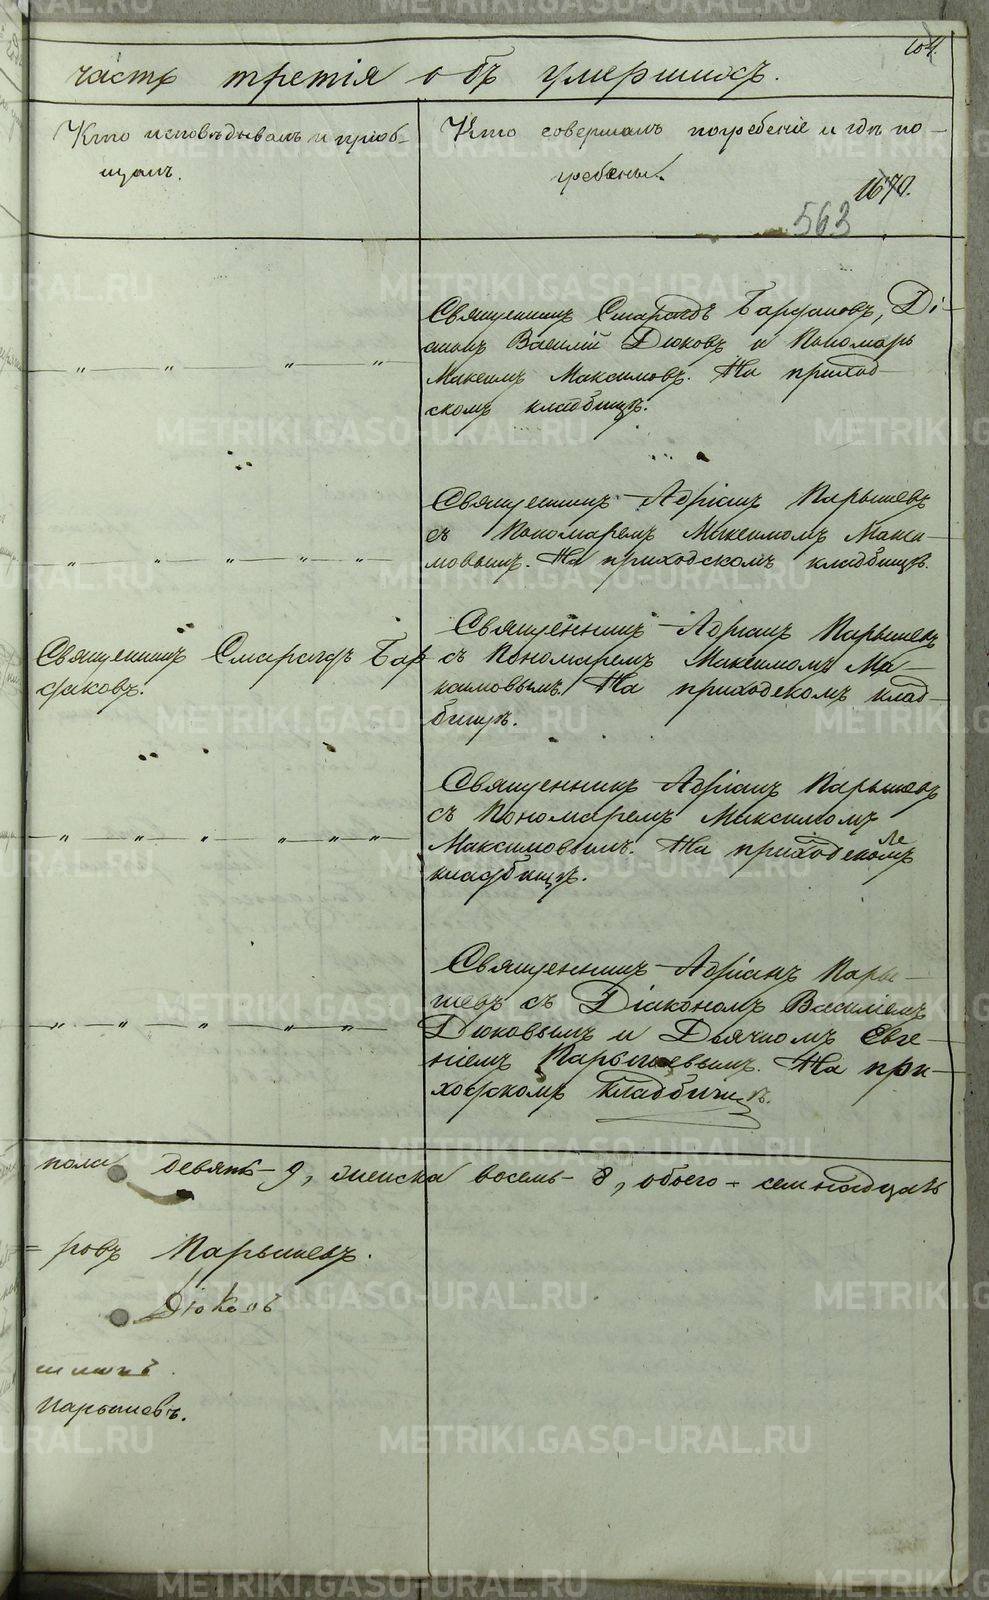 104.
часть третія объ умершихъ.
Кто исповѣдывалъ и пріоб-
щалъ.
Кто совершалъ погребеніе и гдѣ по-
гребены.
1670.
563
Священникъ Смарагдъ Барсаковъ, Ді-
аконъ Василій Дюковъ и Пономарь
Максимъ Максимовъ. На приход-
скомъ кладбищѣ.
Священникъ Адріанъ Парышевъ
съ Пономаремъ Максимомъ Макси-
мовымъ. На приходскомъ кладбищѣ.
Священникъ Смарагдъ Бар
саковъ.
Священникъ Адріанъ Парышевъ
съ Пономаремъ Максимомъ Ма-
ксимовымъ. На приходскомъ клад-
бищѣ.
Священникъ Адріанъ Парышевъ
съ Пономаремъ Максимомъ
Максимовымъ. На приходскомъ
кладбищѣ.
Священникъ Адріанъ Пары-
шевъ съ Діакономъ Василіемъ
Дюковымъ и Дьячкомъ Евге-
ніемъ Парышевымъ. На при-
ходскомъ кладбищѣ.
пола девять - 9, женска восемь - 8, обоего - семнадцать
= ровъ Парышевъ.
Дюковъ
Парышевъ.
METRIKI.GASO-URAL.RU